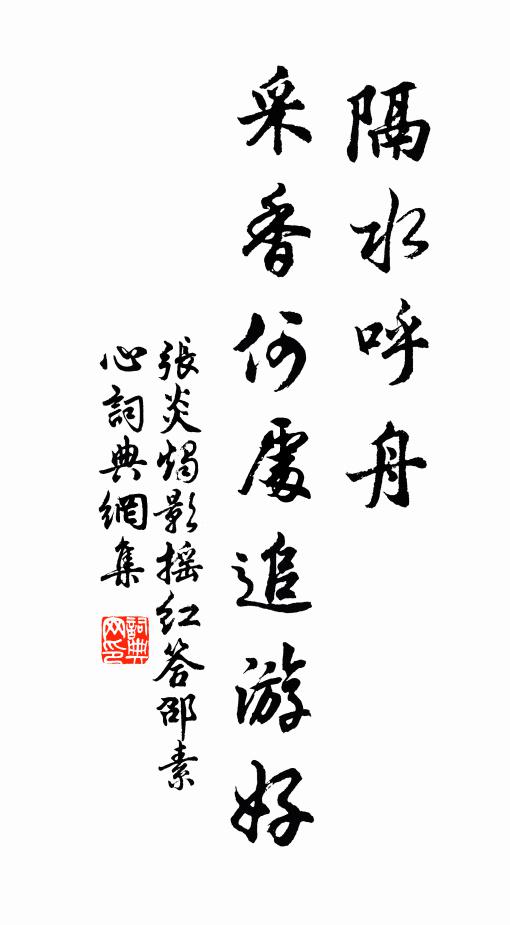 隔水呼舟
采香何處追游好
張炎燭影搖紅答邵素
心詞典網集
詞典网印